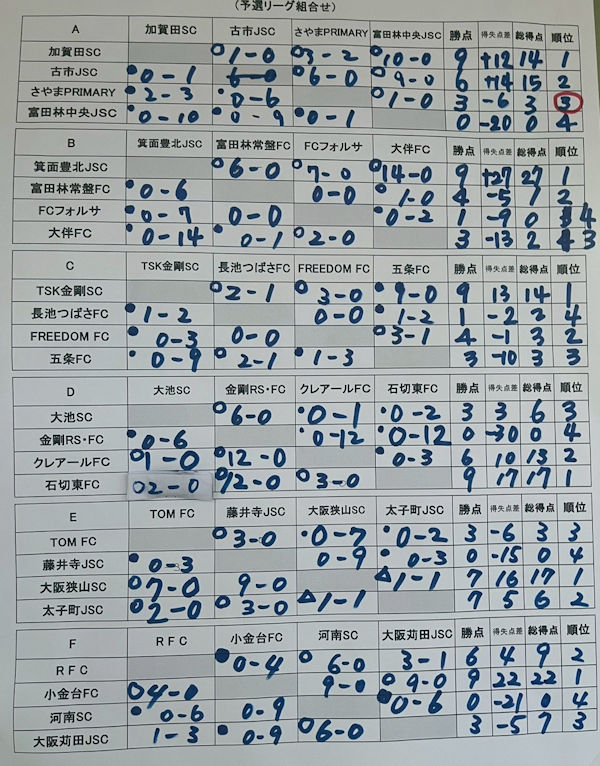 (予選リーグ組合せ)
A 加賀田SC 古市JSC さやまPRIMARY 富田林中央JSC 勝点 得失点差 総得点 順位
加賀田SC ○1-0 ○3-2 ○10-0 9 +12 14 1
古市JSC ●0-1 6-0 ○6-0 ○9-0 6 +14 15 2
さやまPRIMARY ●2-3 ●0-6 ○1-0 3 -6 3 3
富田林中央JSC ●0-10 ●0-9 ●0-1 0 -20 0 4
B 箕面豊北JSC 富田林常盤FC FCフォルサ 大伴FC 勝点 得失点差 総得点 順位
箕面豊北JSC ○6-0 ○7-0 ○14-0 9 +27 27 1
富田林常盤FC ●0-6 0-0 ○1-0 4 -5 1 2
FCフォルサ ●0-7 0-0 ●0-2 1 -9 0 4
大伴FC ●0-14 ●0-1 ○2-0 3 -13 2 3
C TSK金剛SC 長池つばさFC FREEDOM FC 五条FC 勝点 得失点差 総得点 順位
TSK金剛SC ○2-1 ○3-0 ○9-0 9 13 14 1
長池つばさFC ●1-2 0-0 ●1-2 1 -2 2 4
FREEDOM FC ●0-3 0-0 ○3-1 4 -1 3 2
五条FC ●0-9 ○2-1 ●1-3 3 -10 3 3
D 大池SC 金剛RS・FC クレアールFC 石切東FC 勝点 得失点差 総得点 順位
大池SC ○6-0 ●0-1 ●0-2 3 3 6 3
金剛RS・FC ●0-6 ●0-12 ●0-12 0 -30 0 4
クレアールFC ○1-0 ○12-0 ●0-3 6 10 13 2
石切東FC ○2-0 ○12-0 ○3-0 9 17 17 1
E TOM FC 藤井寺JSC 大阪狭山SC 太子町JSC 勝点 得失点差 総得点 順位
TOM FC ○3-0 ●0-7 ●0-2 3 -6 3 3
藤井寺JSC ●0-3 0-9 ●0-3 0 -15 0 4
大阪狭山SC ○7-0 9-0 △1-1 7 16 17 1
太子町JSC ○2-0 ○3-0 △1-1 7 5 6 2
F RFC 小金台FC 河南SC 大阪苅田JSC 勝点 得失点差 総得点 順位
RFC ●0-4 ○6-0 3-1 6 4 9 2
小金台FC ○4-0 9-0 ○9-0 9 22 22 1
河南SC ●0-6 0-9 ●0-6 0 -21 0 4
大阪苅田JSC 1-3 ●0-9 ○6-0 3 -5 7 3